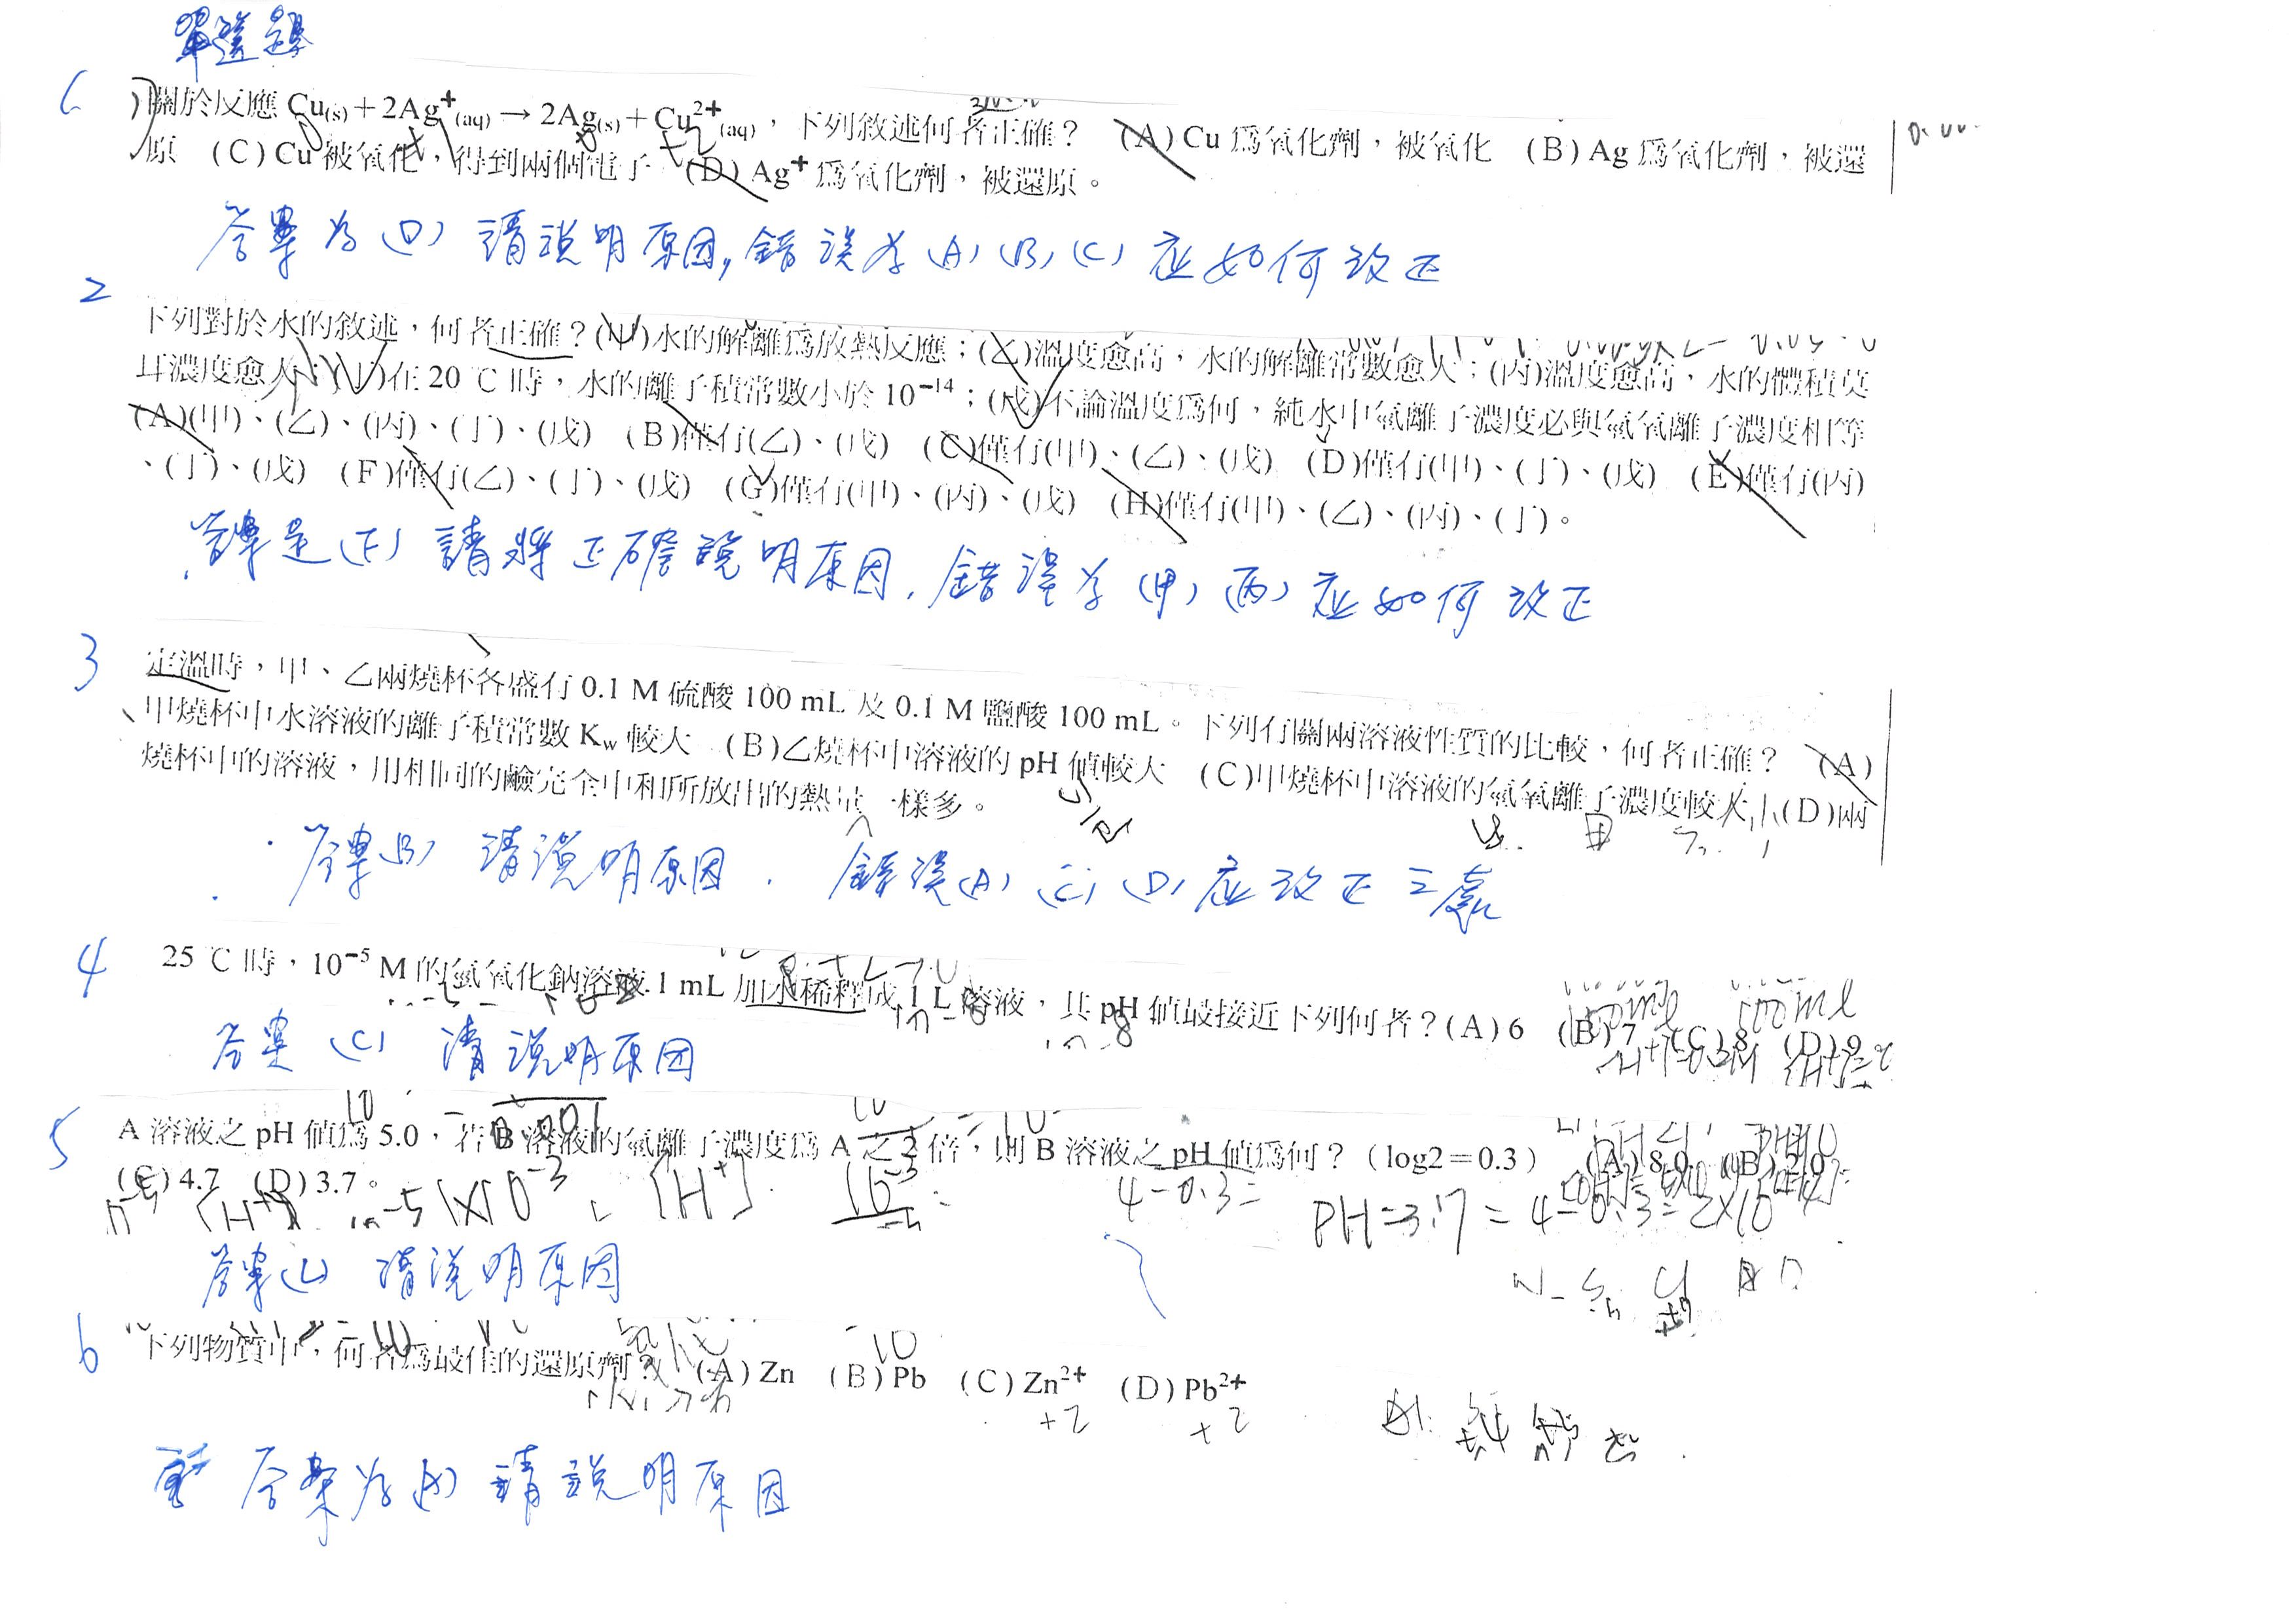 單選題
1
關於反應 Cu(s)+2Ag⁺(aq)→2Ag(s)+Cu²⁺(aq),下列敘述何者正確? (A)Cu 為氧化劑,被氧化 (B)Ag 為氧化劑,被還
原 (C)Cu 被氧化,得到兩個電子 (D)Ag⁺ 為氧化劑,被還原。
答案為(D) 請說明原因,錯誤為(A)(B)(C)应如何改正
2
下列對於水的敘述,何者正確?(甲)水的解離為放熱反應;(乙)溫度愈高,水的解離常數愈大;(丙)溫度愈高,水的體積莫
耳濃度愈大;(丁)在 20 ℃時,水的離子積常數小於 10⁻¹⁴;(戊)不論溫度為何,純水中氫離子濃度必與氫氧離子濃度相等
(A)(甲)、(乙)、(丙)、(丁)、(戊) (B)僅有(乙)、(戊) (C)僅有(甲)、(乙)、(戊) (D)僅有(甲)、(丁)、(戊) (E)僅有(丙)
、(丁)、(戊) (F)僅有(乙)、(丁)、(戊) (G)僅有(甲)、(丙)、(戊) (H)僅有(甲)、(乙)、(丙)、(丁)。
答案是(F) 請將正確說明原因,錯誤為(甲)(丙)应如何改正
3
定溫時,甲、乙兩燒杯各盛有 0.1 M 硫酸 100 mL 及 0.1 M 鹽酸 100 mL。下列有關兩溶液性質的比較,何者正確? (A)
甲燒杯中水溶液的離子積常數 Kw 較大 (B)乙燒杯中溶液的 pH 值較大 (C)甲燒杯中溶液的氫氧離子濃度較大 (D)兩
燒杯中的溶液,用相同的鹼完全中和所放出的熱量一樣多。
答案(B) 請說明原因. 錯誤(A)(C)(D)应改正三處
4
25 ℃時,10⁻⁵ M 的氫氧化鈉溶液 1 mL 加水稀釋成 1 L 溶液,其 pH 值最接近下列何者?(A)6 (B)7 (C)8 (D)9
答案(C) 請說明原因
5
A 溶液之 pH 值為 5.0,若 B 溶液的氫離子濃度為 A 之 2 倍,則 B 溶液之 pH 值為何?(log2=0.3) (A)8.0 (B)2.0
(C)4.7 (D)3.7。
4-0.3=
PH=3.7=4-0.3=2x10
答案(C) 請說明原因
6
下列物質中,何者為最佳的還原劑? (A)Zn (B)Pb (C)Zn²⁺ (D)Pb²⁺
+2 +2
答案為(A) 請說明原因